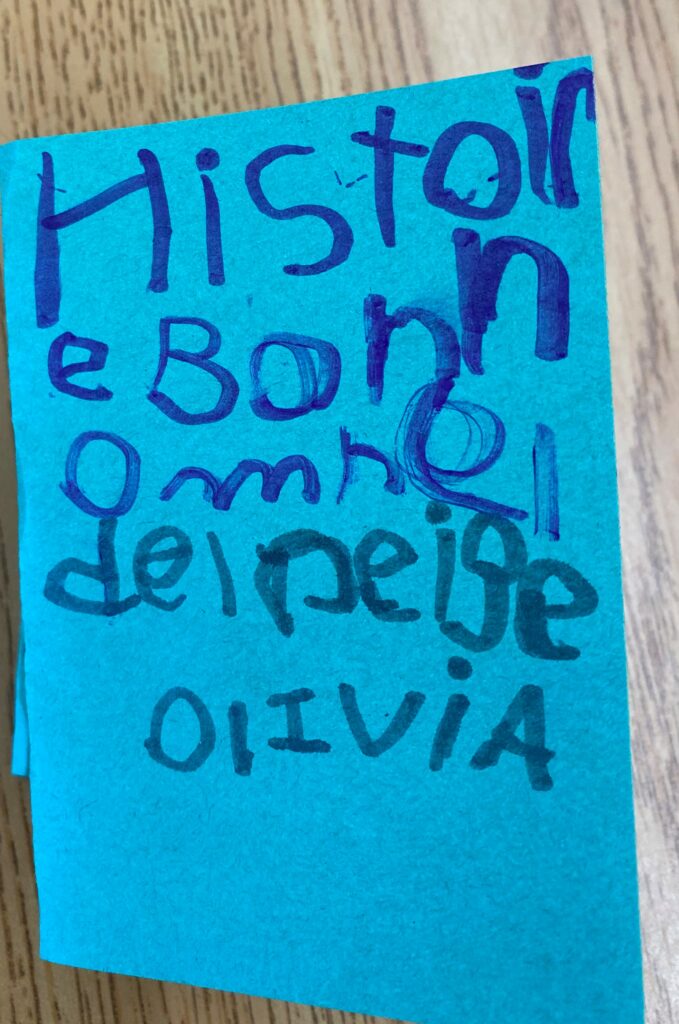 HistoIr
e Bonn
omhel
del neige
OlIViA